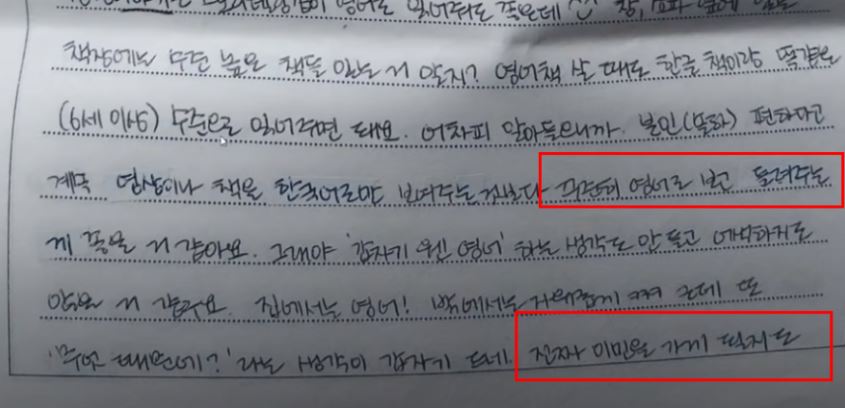 영어로 읽어줘도 좋은데
책장에는 수준 높은 책들 있는 거 알지? 영어책 살 때도 한글 책이랑 똑같은
(6세 이상) 수준으로 읽어주면 돼요. 어차피 알아들으니까. 본인(모화) 편하다고
계속 영상이나 책을 한국어로만 보여주는 것보다 꾸준히 영어로 보고 들려주는
게 좋을 거 같아요. 그래야 '갑자기 웬 영어' 하는 생각도 안 들고 어색하지도
않을 거 같구요. 집에서는 영어! 밖에서는 자연스럽게 근데 또
'무엇 때문에?' 라는 생각이 갑자기 드네. 진짜 이민을 가게 될지도